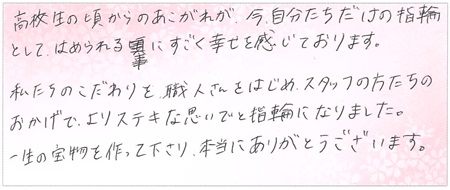 高校生の頃からのあこがれが、今、自分たちだけの指輪
として、はめられる事にすごく幸せを感じております。
私たちのこだわりを、職人さんをはじめ、スタッフの方たちの
おかげで、よりステキな思いでと指輪になりました。
一生の宝物を作って下さり、本当にありがとうございます。